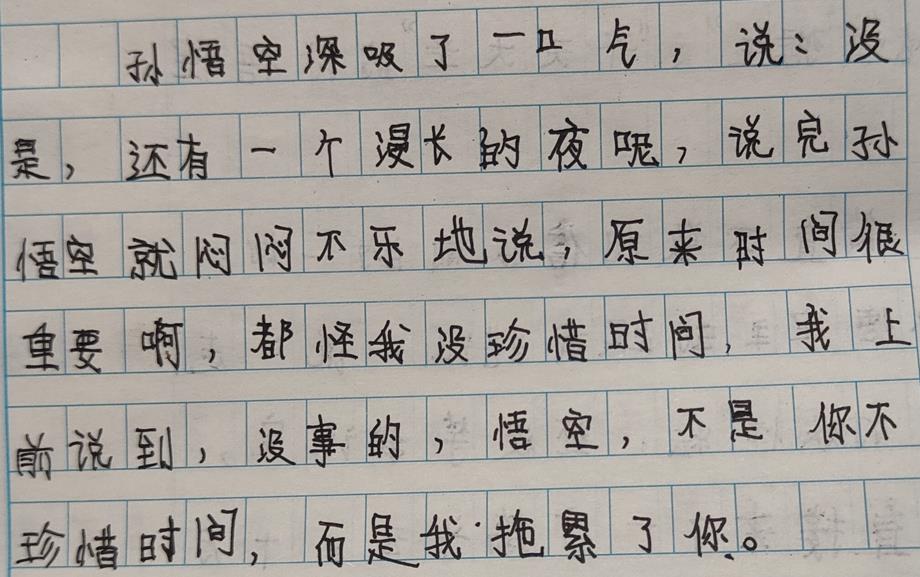 孙悟空深吸了一口气，说：没
是，还有一个漫长的夜呢，说完孙
悟空就闷闷不乐地说，原来时间很
重要啊，都怪我没珍惜时间，我上
前说到，没事的，悟空，不是你不
珍惜时间，而是我拖累了你。